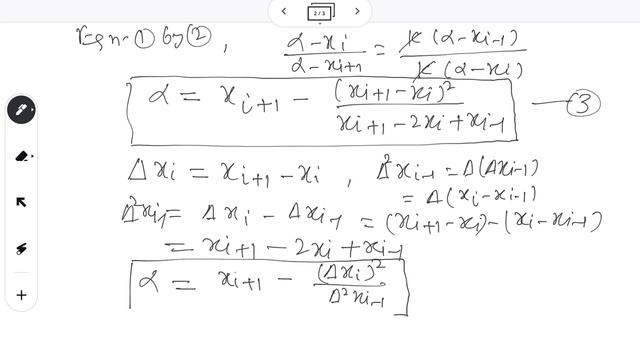 2 / 3
Eqn. ① by ②, (α-xi)/(α-xi+1) = K(α-xi-1)/K(α-xi)
α = xi+1 - (xi+1-xi)²/(xi+1-2xi+xi-1) — ③
Δxi = xi+1-xi, Δ²xi-1 = Δ(Δxi-1)
= Δ(xi-xi-1)
Δ²xi-1 = Δxi - Δxi-1 = (xi+1-xi)-(xi-xi-1)
= xi+1 - 2xi + xi-1
α = xi+1 - (Δxi)²/Δ²xi-1